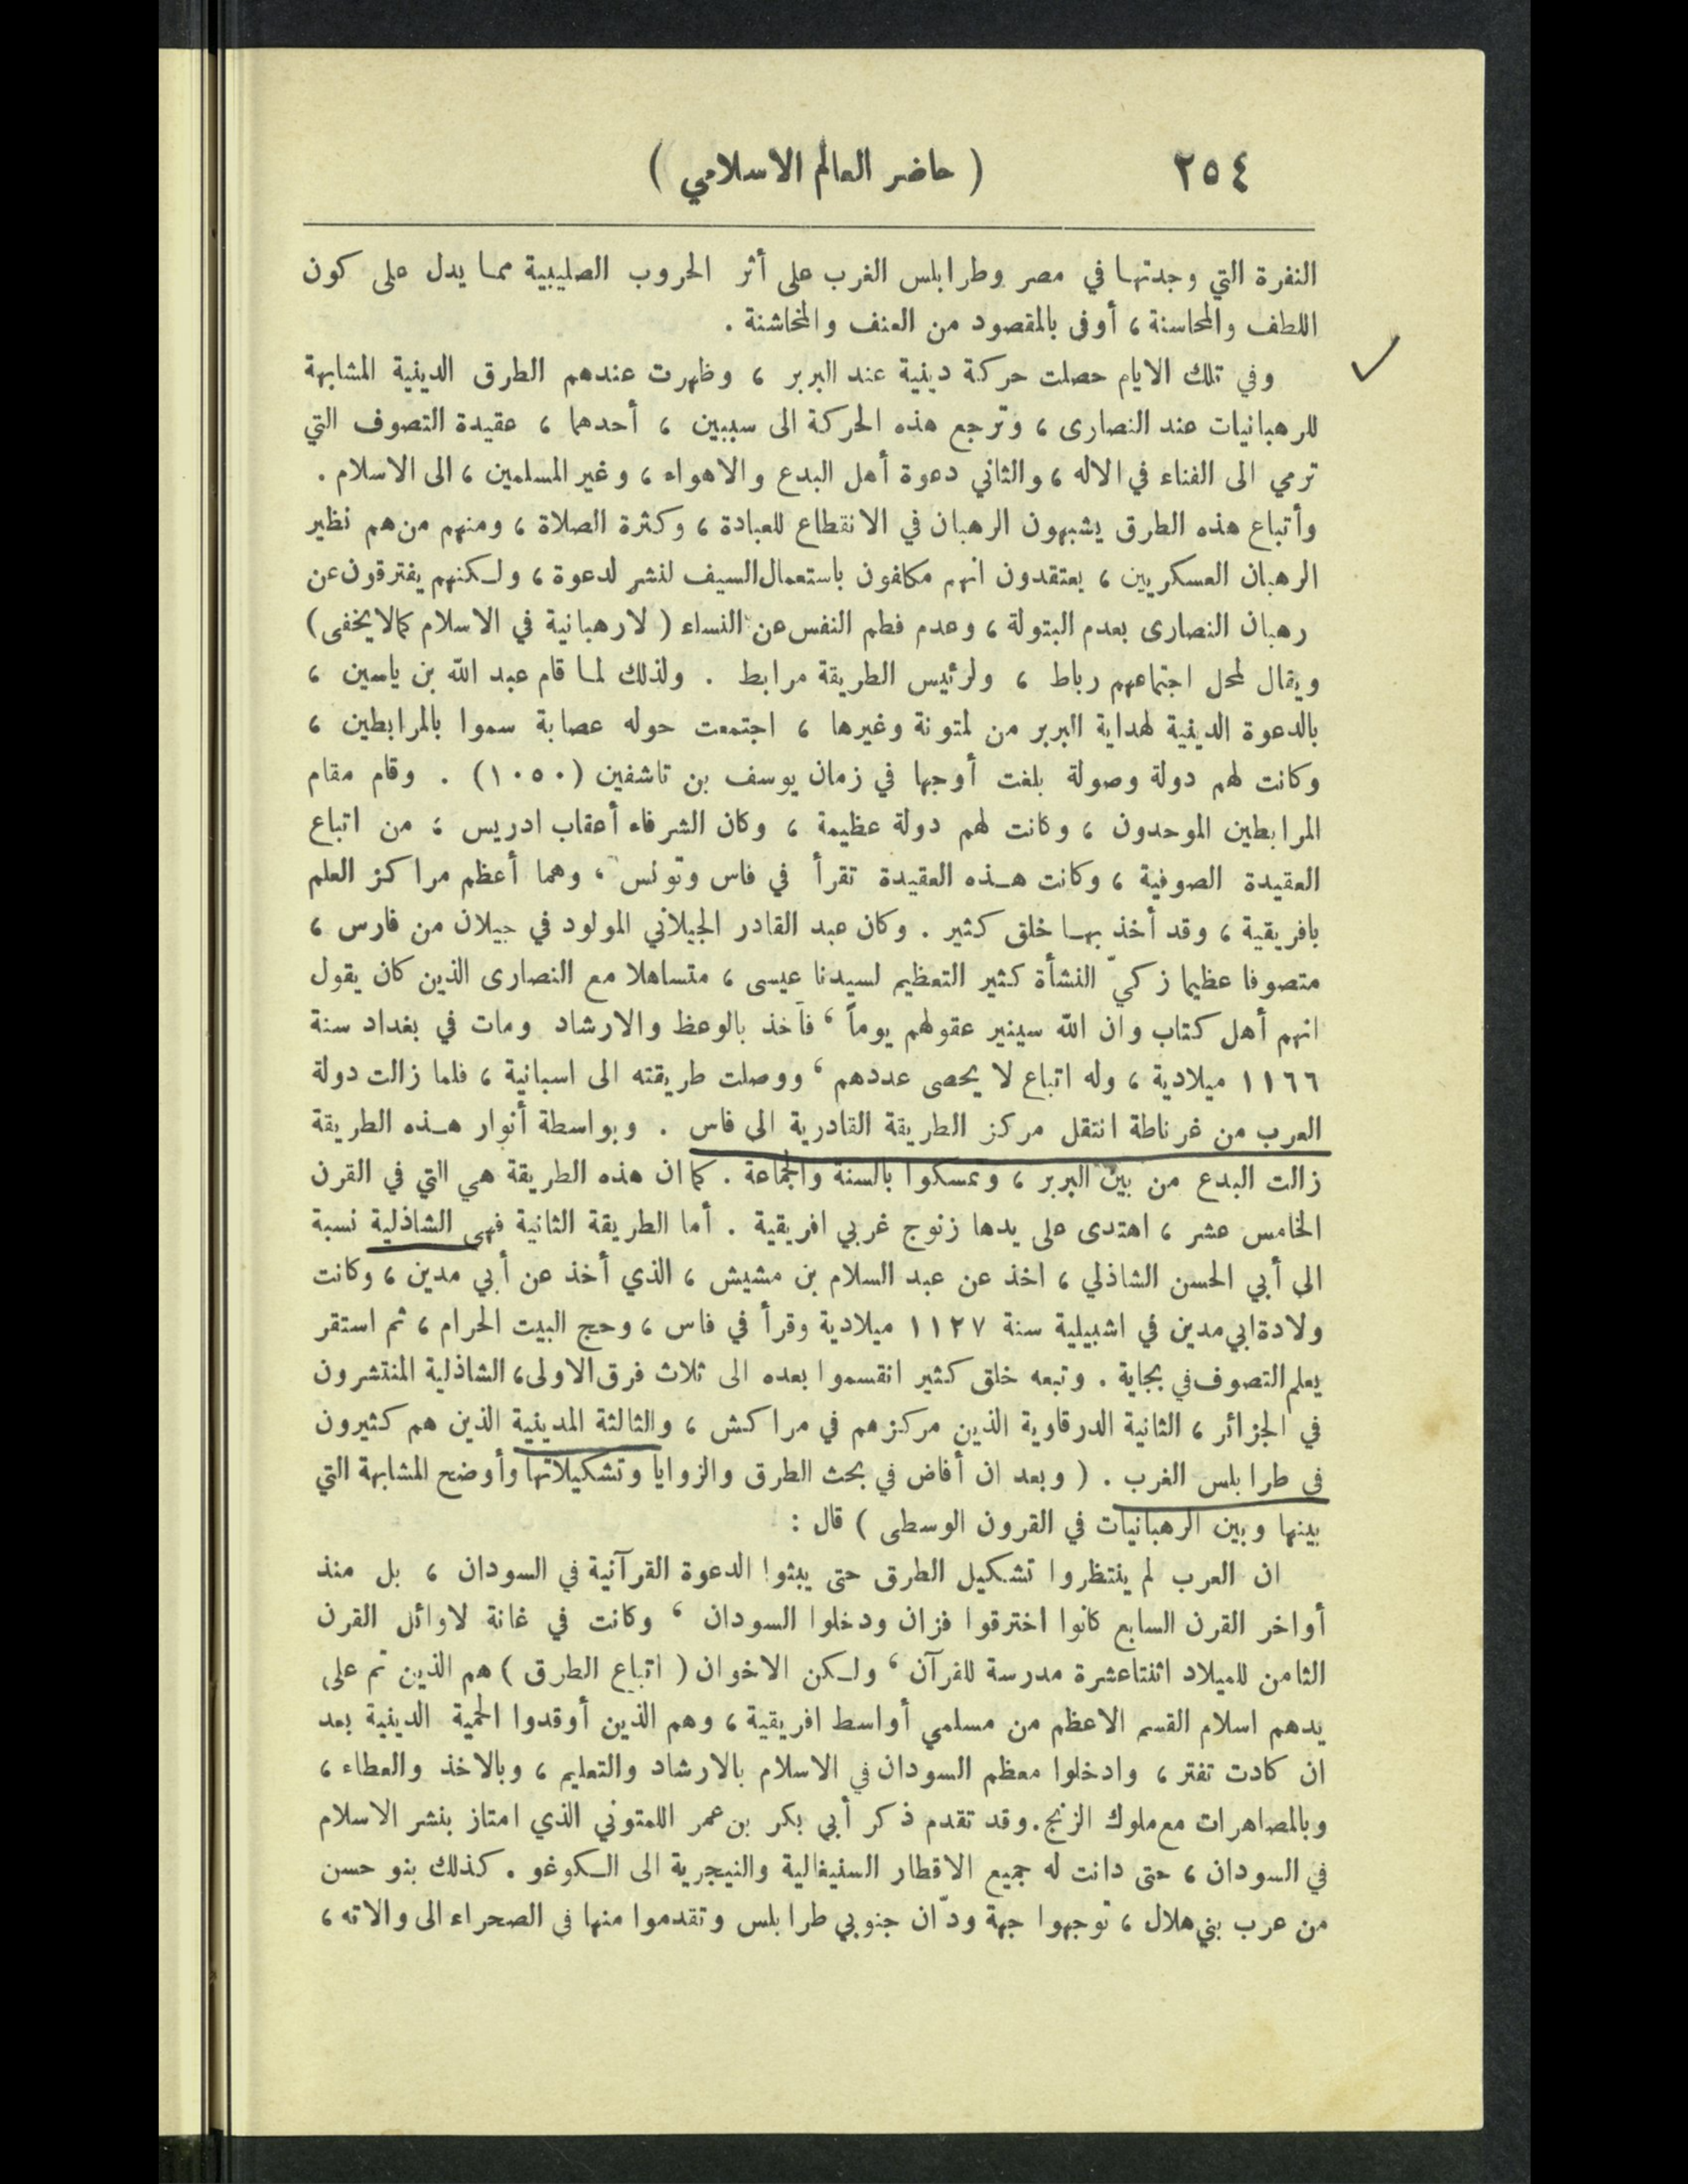 ٢٥٤
( حاضر العالم الاسلامي )
النفرة التي وجدتها في مصر وطرابلس الغرب على أثر الحروب الصليبية مما يدل على كون
اللطف والمحاسنة ، أوفى بالمقصود من العنف والمخاشنة .
وفي تلك الايام حصلت حركة دينية عند البربر ، وظهرت عندهم الطرق الدينية المشابهة
للرهبانيات عند النصارى ، وترجع هذه الحركة الى سببين ، أحدهما ، عقيدة التصوف التي
ترمي الى الفناء في الاله ، والثاني دعوة أهل البدع والاهواء ، وغير المسلمين ، الى الاسلام .
وأتباع هذه الطرق يشبهون الرهبان في الانقطاع للعبادة ، وكثرة الصلاة ، ومنهم من هم نظير
الرهبان العسكريين ، يعتقدون انهم مكلفون باستعمال السيف لنشر لدعوة ، ولكنهم يفترقون عن
رهبان النصارى بعدم البتولة ، وعدم فطم النفس عن النساء ( لا رهبانية في الاسلام كمالا يخفى )
ويقال لمحل اجتماعهم رباط ، ولرئيس الطريقة مرابط . ولذلك لما قام عبد الله بن ياسين ،
بالدعوة الدينية لهداية البربر من لمتونة وغيرها ، اجتمعت حوله عصابة سموا بالمرابطين ،
وكانت لهم دولة وصولة بلغت أوجها في زمان يوسف بن تاشفين (١٠٥٠) . وقام مقام
المرابطين الموحدون ، وكانت لهم دولة عظيمة ، وكان الشرفاء أعقاب ادريس ، من اتباع
العقيدة الصوفية ، وكانت هذه العقيدة تقرأ في فاس وتونس ، وهما أعظم مراكز العلم
بافريقية ، وقد أخذ بها خلق كثير . وكان عبد القادر الجيلاني المولود في جيلان من فارس ،
متصوفا عظيما زكيّ النشأة كثير التعظيم لسيدنا عيسى ، متساهلا مع النصارى الذين كان يقول
انهم أهل كتاب وان الله سينير عقولهم يوماً ، فأخذ بالوعظ والارشاد ومات في بغداد سنة
١١٦٦ ميلادية ، وله اتباع لا يحصى عددهم ، ووصلت طريقته الى اسبانية ، فلما زالت دولة
العرب من غرناطة انتقل مركز الطريقة القادرية الى فاس . وبواسطة أنوار هذه الطريقة
زالت البدع من بين البربر ، وتمسكوا بالسنة والجماعة . كما ان هذه الطريقة هي التي في القرن
الخامس عشر ، اهتدى على يدها زنوج غربي افريقية . أما الطريقة الثانية فهي الشاذلية نسبة
الى أبي الحسن الشاذلي ، اخذ عن عبد السلام بن مشيش ، الذي أخذ عن أبي مدين ، وكانت
ولادة ابي مدين في اشبيلية سنة ١١٢٧ ميلادية وقرأ في فاس ، وحج البيت الحرام ، ثم استقر
يعلم التصوف في بجاية . وتبعه خلق كثير انقسموا بعده الى ثلاث فرق الاولى ، الشاذلية المنتشرون
في الجزائر ، الثانية الدرقاوية الذين مركزهم في مراكش ، والثالثة المدينية الذين هم كثيرون
في طرابلس الغرب . ( وبعد ان أفاض في بحث الطرق والزوايا وتشكيلاتها وأوضح المشابهة التي
بينها وبين الرهبانيات في القرون الوسطى ) قال :
ان العرب لم ينتظروا تشكيل الطرق حتى يبثوا الدعوة القرآنية في السودان ، بل منذ
أواخر القرن السابع كانوا اخترقوا فزان ودخلوا السودان ، وكانت في غانة لاوائل القرن
الثامن للميلاد اثنتاعشرة مدرسة للقرآن ، ولكن الاخوان ( اتباع الطرق ) هم الذين تم على
يدهم اسلام القسم الاعظم من مسلمي أواسط افريقية ، وهم الذين أوقدوا الحمية الدينية بعد
ان كادت تفتر ، وادخلوا معظم السودان في الاسلام بالارشاد والتعليم ، وبالاخذ والعطاء ،
وبالمصاهرات مع ملوك الزنج . وقد تقدم ذكر أبي بكر بن عمر اللمتوني الذي امتاز بنشر الاسلام
في السودان ، حتى دانت له جميع الاقطار السنيغالية والنيجرية الى الكوغو . كذلك بنو حسن
من عرب بني هلال ، توجهوا جهة ودّان جنوبي طرابلس وتقدموا منها في الصحراء الى والاته ،